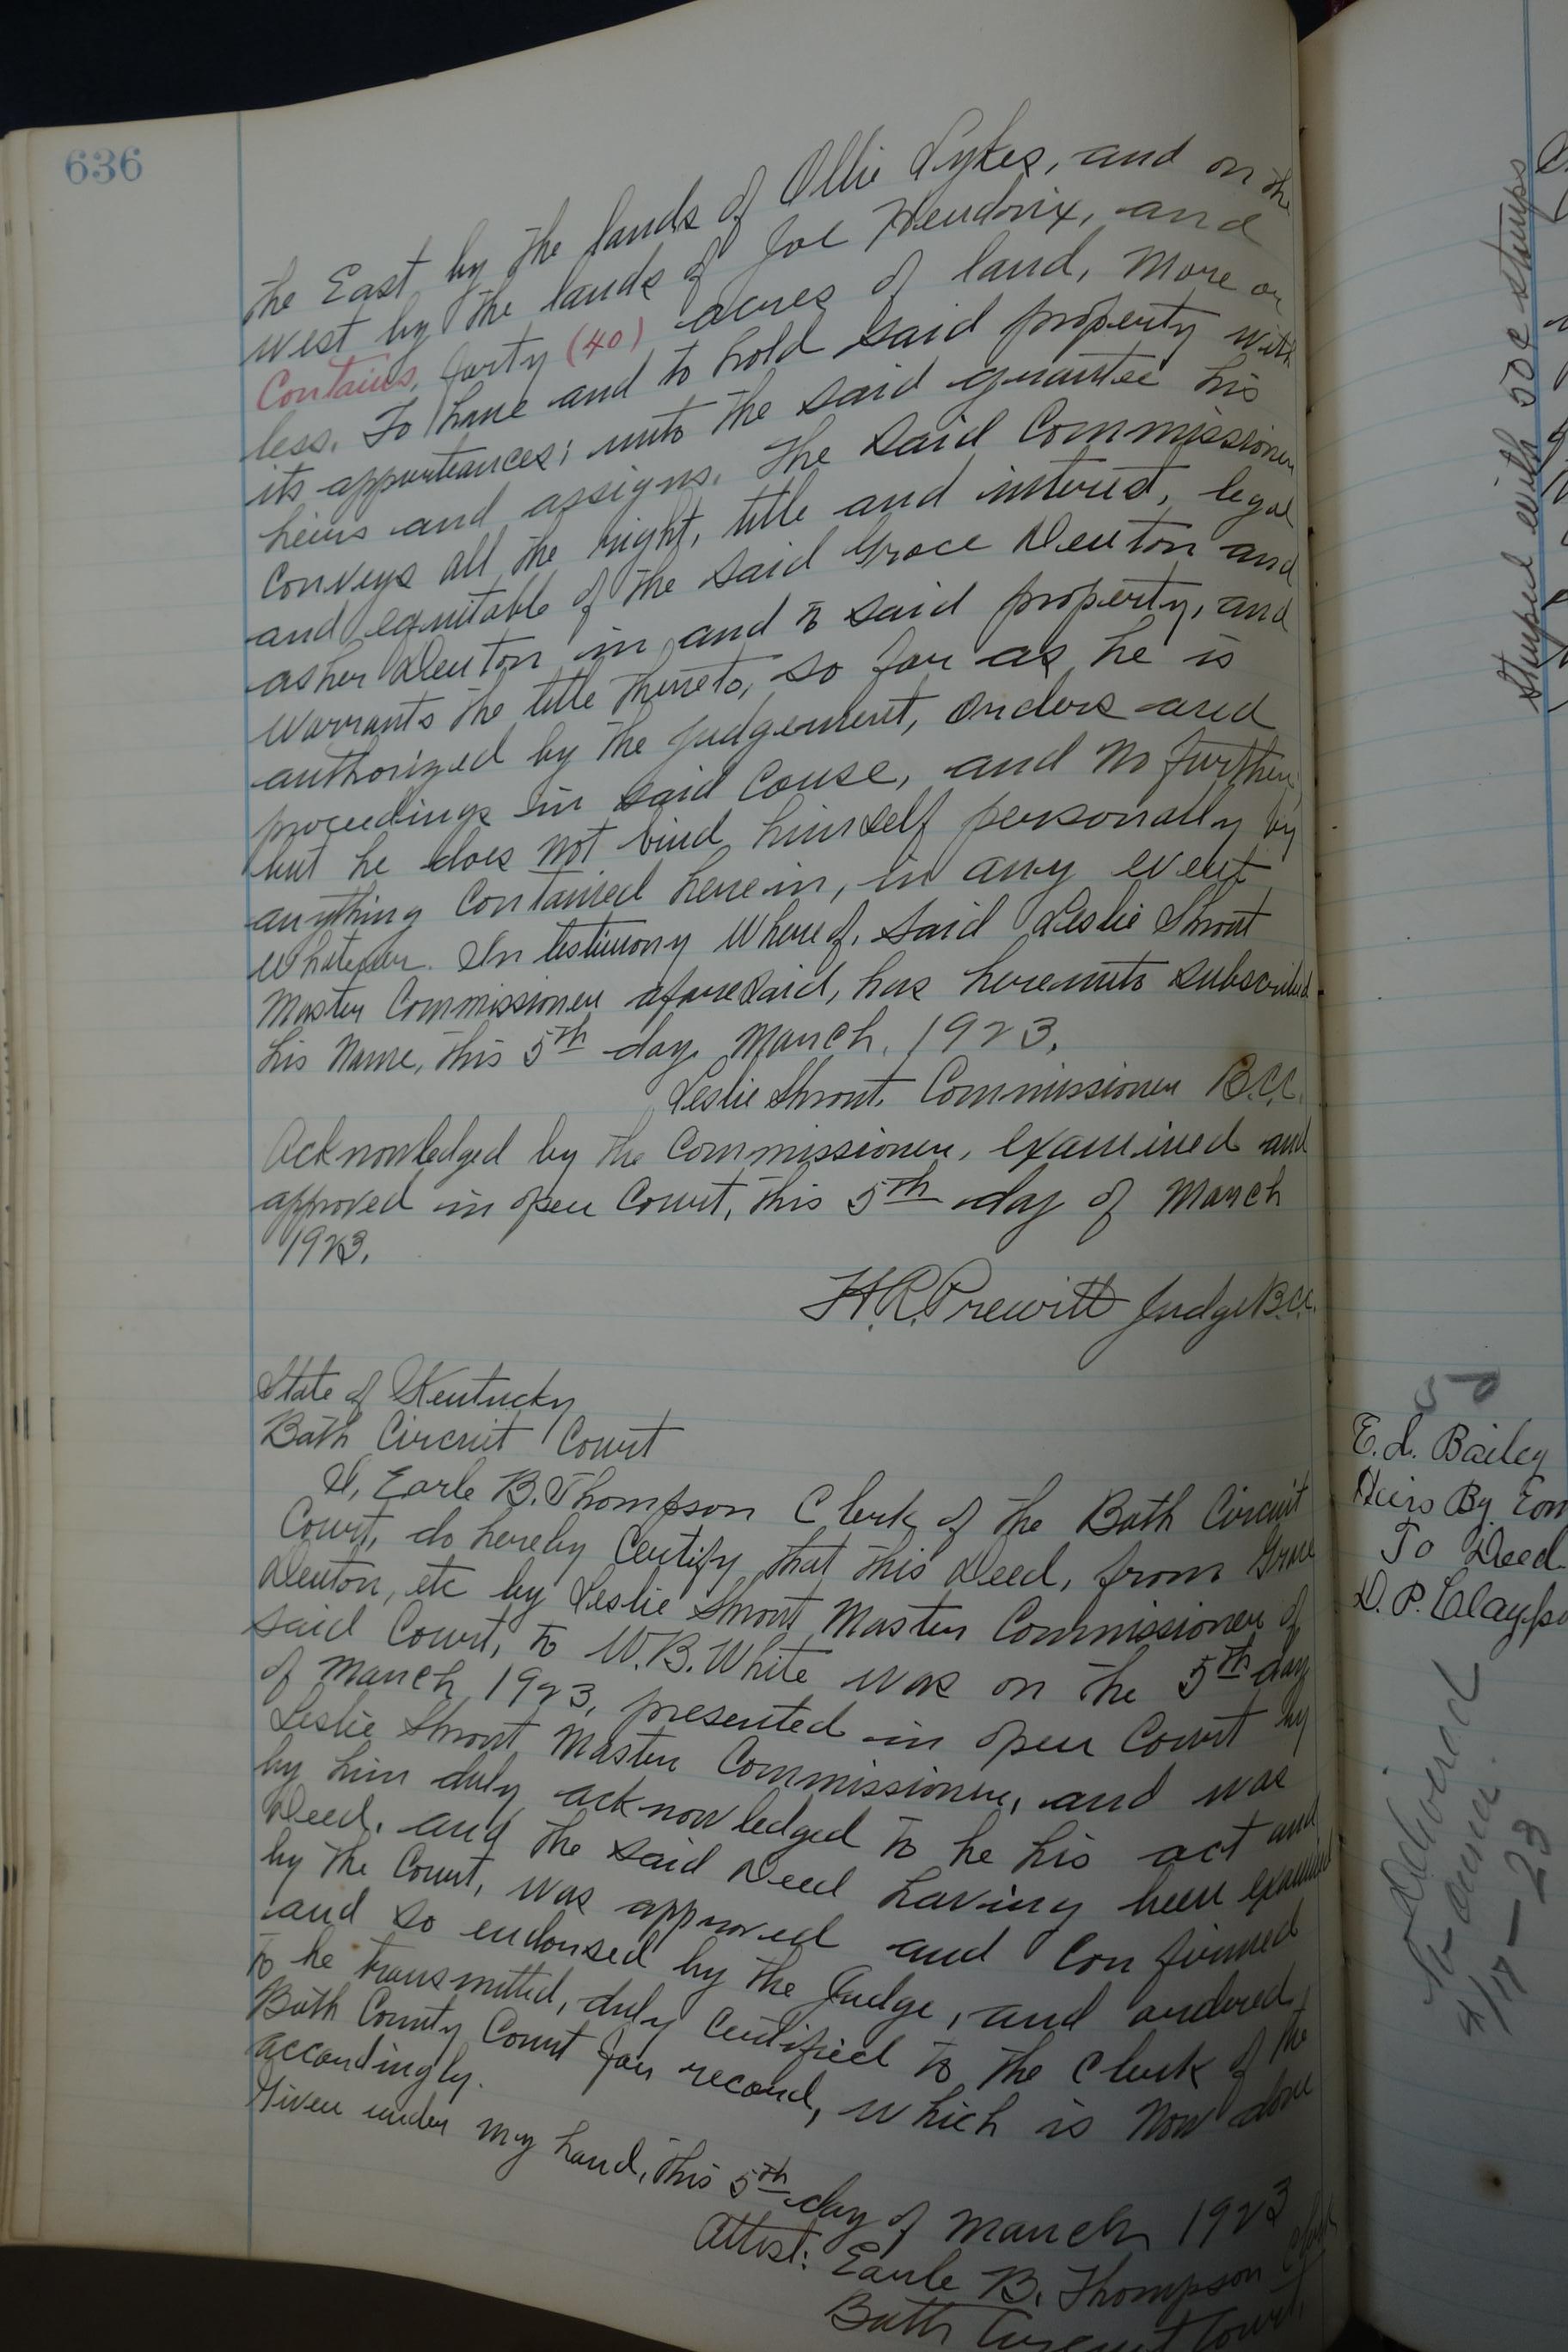 636
the East by the lands of Ollie Sykes, and on the
west by the lands of Joe Hendrix, and
Contains, forty (40) acres of land, More or
less. To have and to hold said property with
its appurteances; unto the said grantee his
heirs and assigns. The said Commissioner
Conveys all the right, title and interest, legal
and equitable of the said Grace Denton and
asher Denton in and to said property, and
Warrants the title thereto, so far as he is
authorized by the judgement, orders and
proceedings in said Couse, and no further,
but he does not bind himself personally by
anything Contained herein, in any event
Whatever. In testimony Whereof, said Leslie Shrout
Master Commissioner aforesaid, has hereunto subscribed
his Name, this 5th day March, 1923.
Leslie Shrout, Commissioner B.C.C.
Acknowledged by the Commissioner, examined and
approved in open Court, this 5th day of March
1923.
H.R. Prewitt Judge B.C.C.
State of Kentucky
Bath Circuit Court
I, Earle B. Thompson Clerk of the Bath Circuit
Court, do hereby Certify that this Deed, from Grace
Denton, etc by Leslie Shrout Master Commissioner of
said Court, to W.B. White was on the 5th day
of March 1923, presented in open Court by
Leslie Shrout Master Commissioner, and was
by him duly acknowledged to be his act and
Deed. and the said Deed having been examined
by the Court, was approved and Confirmed
and so endorsed by the Judge, and ordered
to be transmitted, duly Certified to the Clerk of the
Bath County Court for record, which is Now done
accordingly.
Given under my hand, this 5th day of March 1923
Attest: Earle B. Thompson Clerk
Bath Circuit Court,
Stamped with 50¢ stamps
50
E. L. Bailey
Heirs By Com
To Deed
D. P. Claypo
Delivered
to
4/17-23